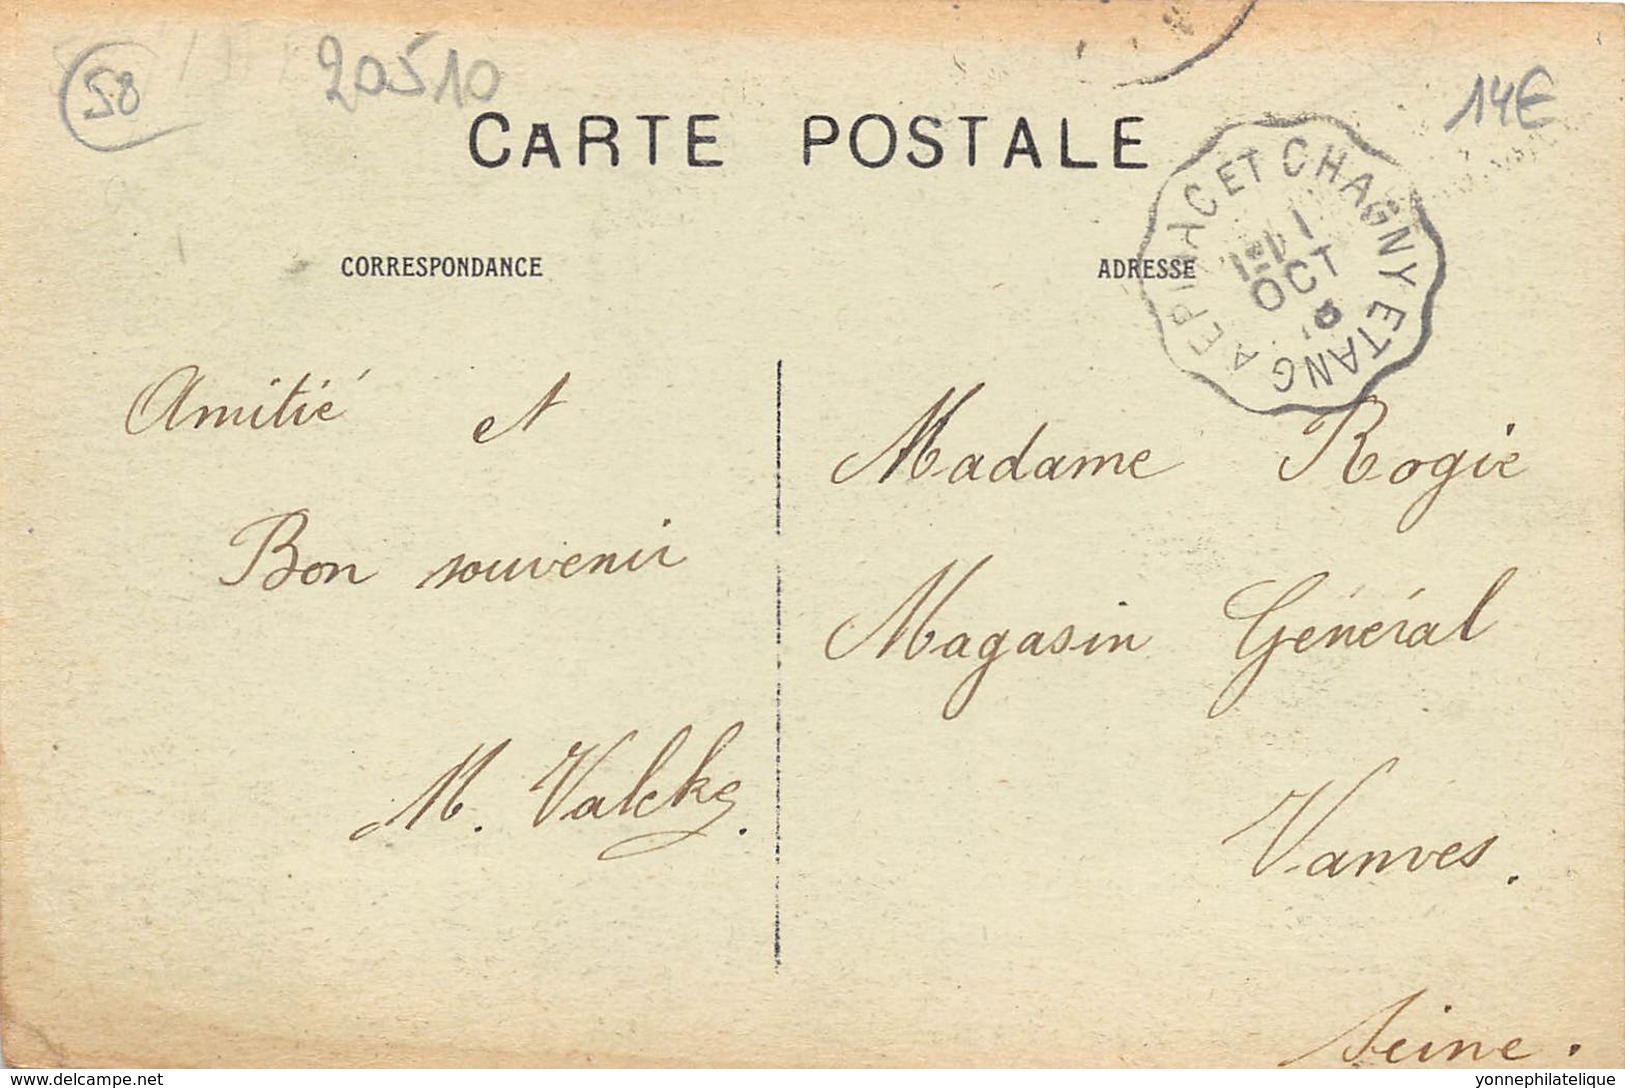 58
20510
14€
CARTE POSTALE
EPINAC ET CHAGNY ETANG A
1
OCT
CORRESPONDANCE
ADRESSE
Amitié et
Bon souvenir
M. Valcke.
Madame Rogie
Magasin Général
Vanves.
Seine.
delcampe.net
yonnephilatelique